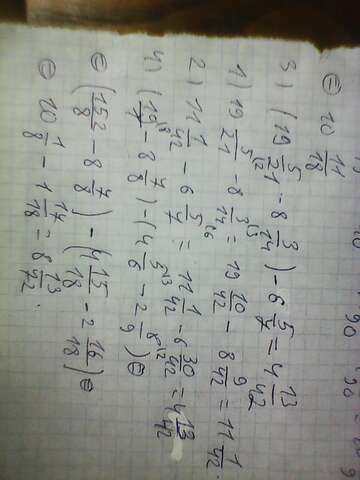 ⊖ 10 11/18
3) (19 5/21 - 8 3/14) - 6 5/7 = 4 13/42
1) 19 5/21 - 8 3/14 = 19 10/42 - 8 9/42 = 11 1/42.
2) 11 1/42 - 6 5/7 = 11 1/42 - 6 30/42 = 4 13/42
4) (19 - 8 7/8) - (4 5/6 - 2 8/9) ⊖
⊖ (152/8 - 8 7/8) - (4 15/18 - 2 16/18) ⊖
⊖ 10 1/8 - 1 17/18 = 8 13/72.